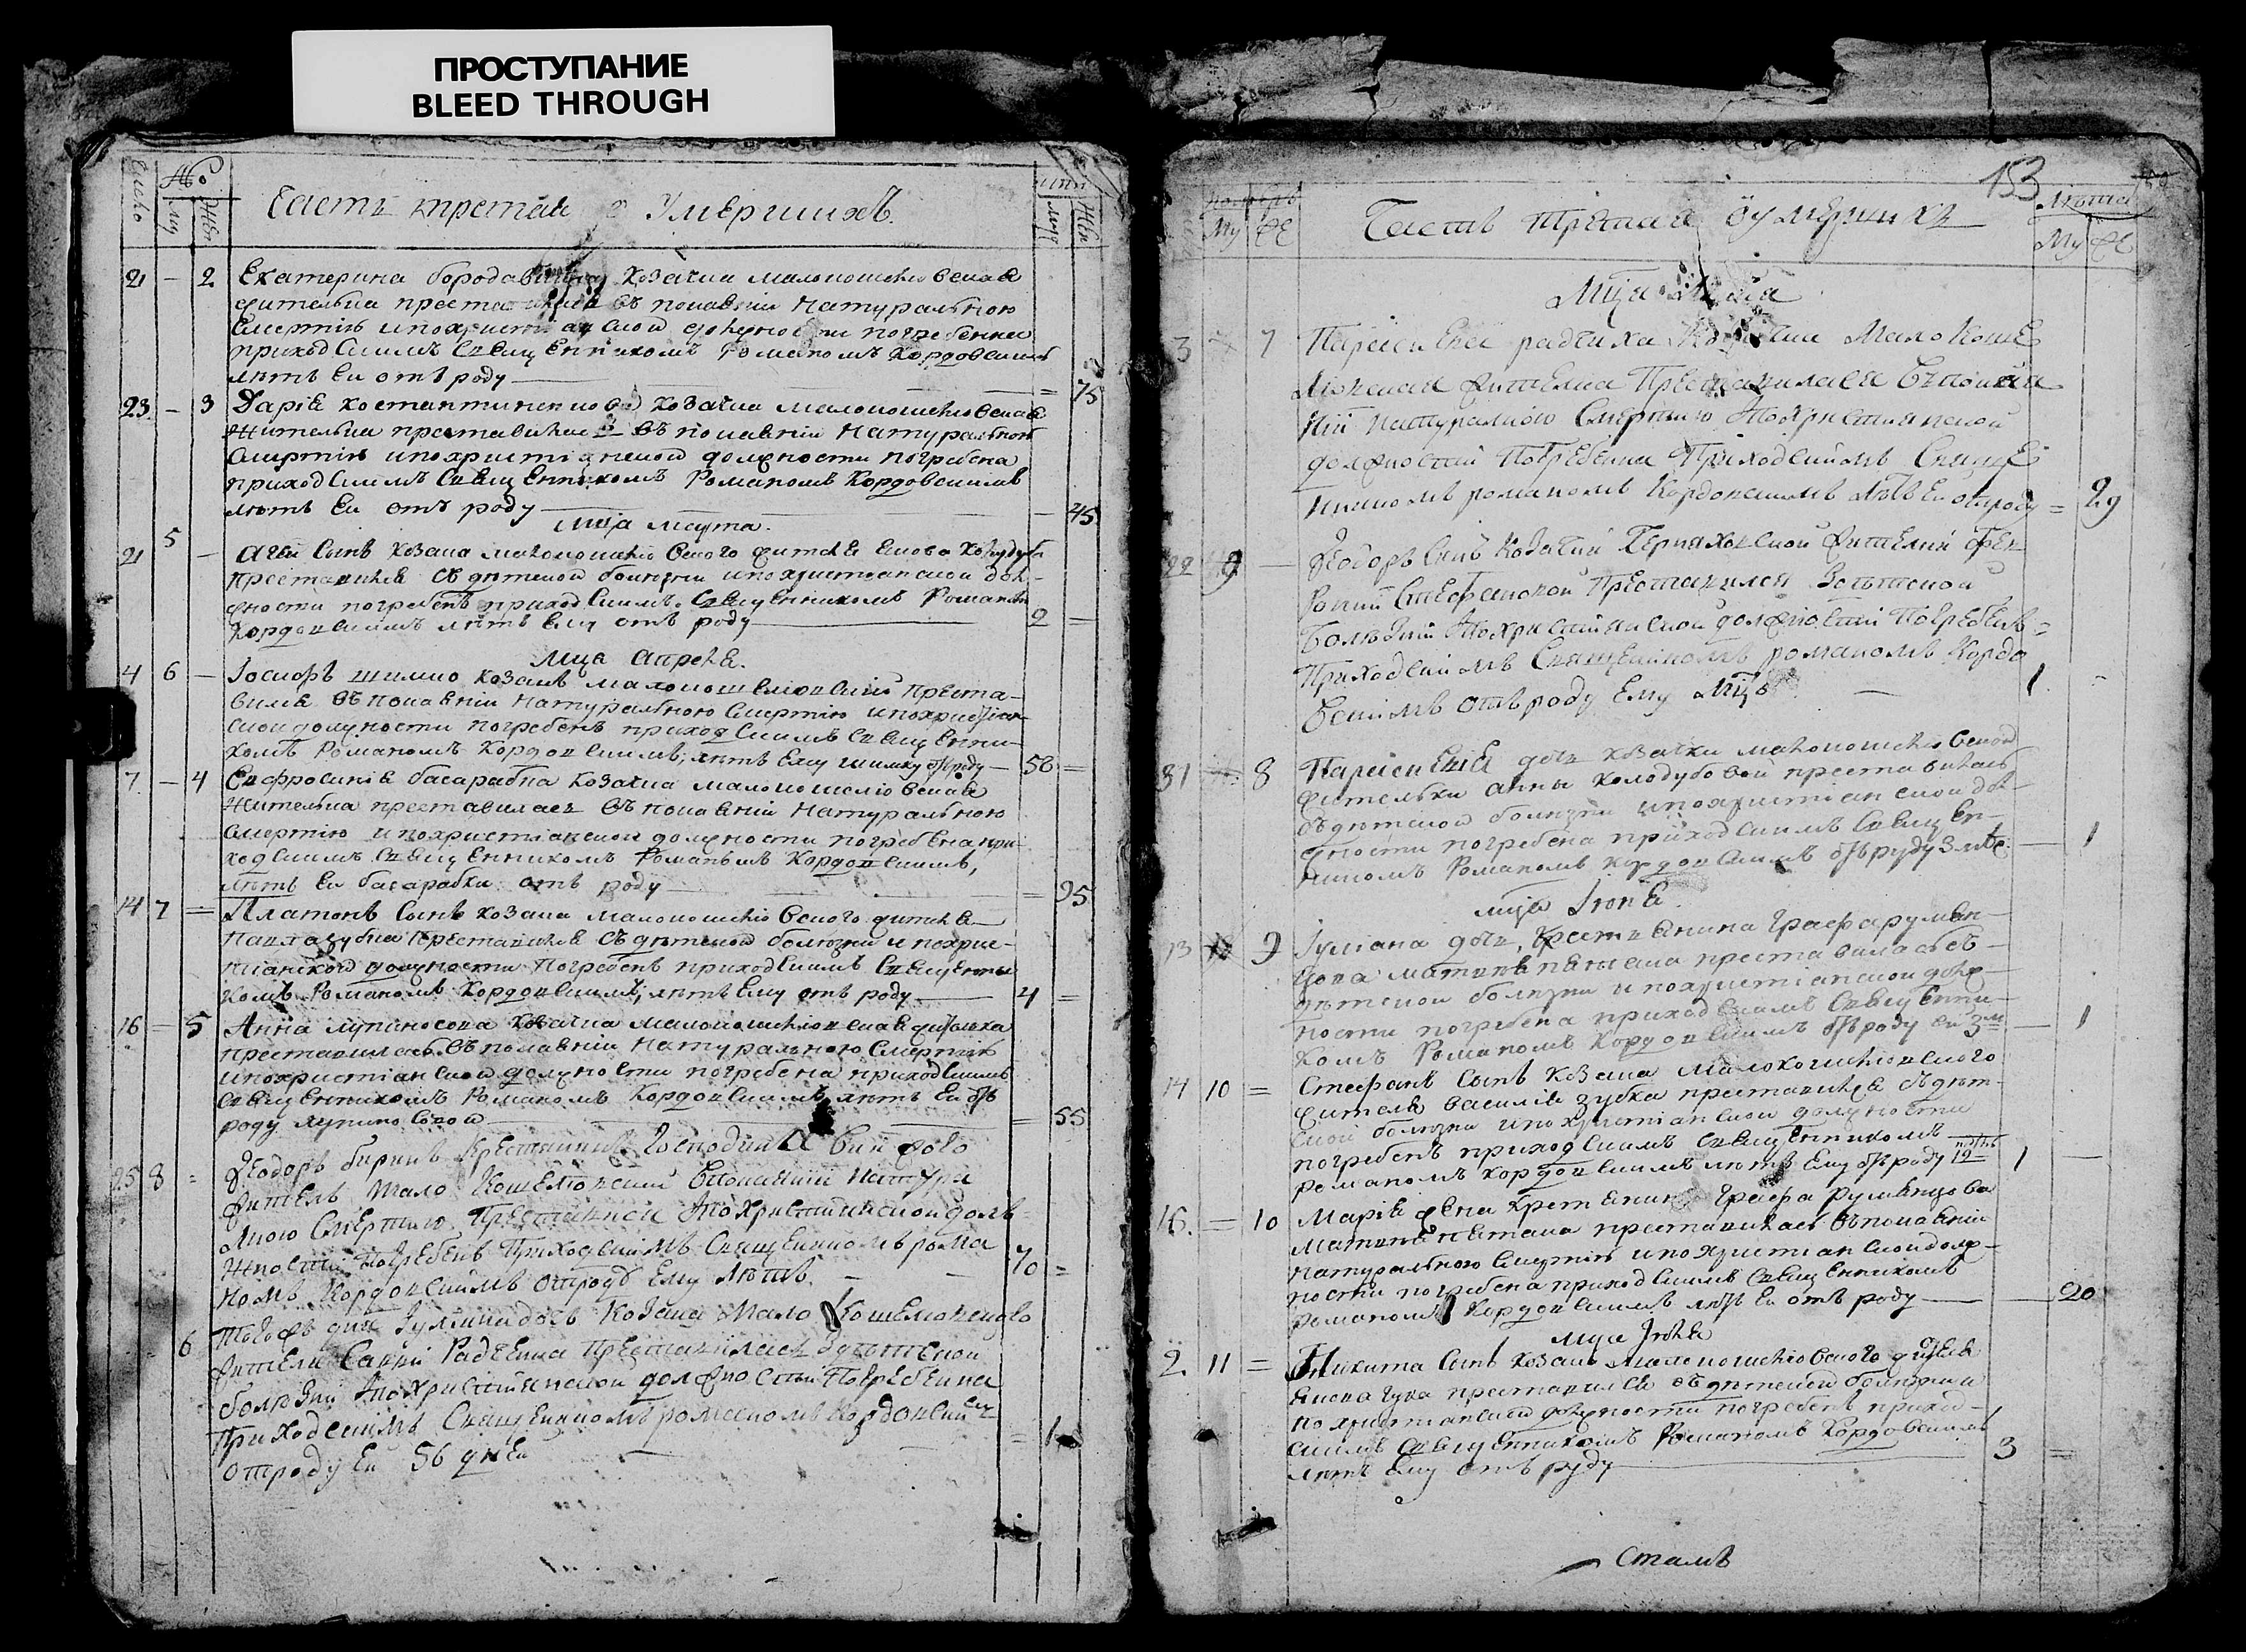 ПРОСТУПАНИЕ
BLEED THROUGH
Число № лѣта
му жен муж жен
Часть третая о Умершихъ
21 – 2 Екатерина козачка малокошелювская
жителка преста въ покаянии натуралною
смертію и по христіанской должности погребенна
приходскимъ священникомъ Романомъ Кордовскимъ
лѣтъ ей отъ роду = 75
23 – 3 Дарія козачка малокошелювская
жителка преставилася въ покаянии натуралною
смертію и по христіанской должности погребена
приходскимъ священникомъ Романомъ Кордовскимъ
лѣтъ ей отъ роду – 45
мца марта
21 5 – сынъ козака малокошелювского жителя
преставился съ дѣтской болѣзни и по христіанской дол-
жности погребенъ приходскимъ священникомъ Романомъ
Кордовскимъ лѣтъ ему отъ роду 2 –
мца апреля
4 6 – Іосифъ шилко козакъ малокошелювский преста-
вился въ покаянии натуралною смертію и по христіан-
ской должности погребенъ приходскимъ священни-
комъ Романомъ Кордовскимъ, лѣтъ ему отъ роду – 58 =
7 – 4 Евфросинія басарабка козачка малокошелювская
жителка преставилась въ покаянии натуралною
смертію и по христіанской должности погребена при-
ходскимъ священникомъ Романомъ Кордовскимъ,
лѣтъ ей басарабки отъ роду = 95
14 7 = Платонъ сынъ козака малокошелювского жителя
Павла зубка преставился съ дѣтской болѣзни и по хрис-
тіанской должности погребенъ приходскимъ священни
комъ Романомъ Кордовскимъ, лѣтъ ему отъ роду 4 =
16 – 5 Анна лупиносова козачка малокошелювская жителка
преставилась въ покаянии натуралною смертію
и по христіанской должности погребена приходскимъ
священникомъ Романомъ Кордовскимъ лѣтъ ей отъ
роду лупиносовой = 55
25 8 = Ѳеодоръ бирикъ крестянинъ господина
житель мало кошелювский в покаяний натура
лною смертию преставися и по християнской дол
жности погребенъ приходскимъ священникомъ рома
номъ Кордовскимъ отроду ему лѣтъ 70 =
6 тогожъ дня Іулияна дочь козака мало кошелювского
жителя Савы Радченка преставилась з дѣтской
болѣзни и по християнской должности погребенна
приходскимъ священникомъ романомъ Кордовским
отроду ей 56 дней = 1
153
номеръ лѣта
Му же Му же
Часть третая оумершихъ
мца мая
3 7 радчиха козачка мало коше
люиская жителка преставилася в покая
ний натуралною смертию и по християнской
должности погребенна приходскимъ свяще
нникомъ романомъ Кордовскимъ лѣтъ ей отроду = 29
22 9 – Ѳеодоръ синъ козачий жителки
преставился з дѣтской
болѣзни и по християнской должности погребенъ =
приходскимъ священникомъ романомъ Кордо
вскимъ отъ роду ему мцъ 1 -
31 8 дочь козачки малокошелювской
жителки анны колодубовой преставилась
съ дѣтской болѣзни и по христіанской дол-
жности погребена приходскимъ священ-
никомъ Романомъ Кордовскимъ отъ роду – 1
мца Іюня
13 9 Іуліана дочь крестянина графа румян-
цова преставилась съ
дѣтской болѣзни и по христіанской долж-
ности погребена приходскимъ священни-
комъ Романомъ Кордовскимъ отъ роду ей – 1
14 10 = Стефанъ сынъ козака малокошелювского
жителя василія зубка преставился съ дѣт-
ской болѣзни и по христіанской должности
погребенъ приходскимъ священникомъ
романомъ кордовскимъ лѣтъ ему отъ роду 1 –
16. = 10 Марія жена крестянина графа румянцова
преставилась въ покаянии
натуралною смертію и по христіанской долж-
ности погребена приходскимъ священникомъ
романомъ Кордовскимъ лѣтъ ей отъ роду 20
мца Іюля
2. 11 = Никита сынъ козака малокошелювского жителя
преставился съ дѣтской болѣзни и
по христіанской должности погребенъ приход-
скимъ священникомъ Романомъ Кордовскимъ
лѣтъ ему отъ роду 3 =